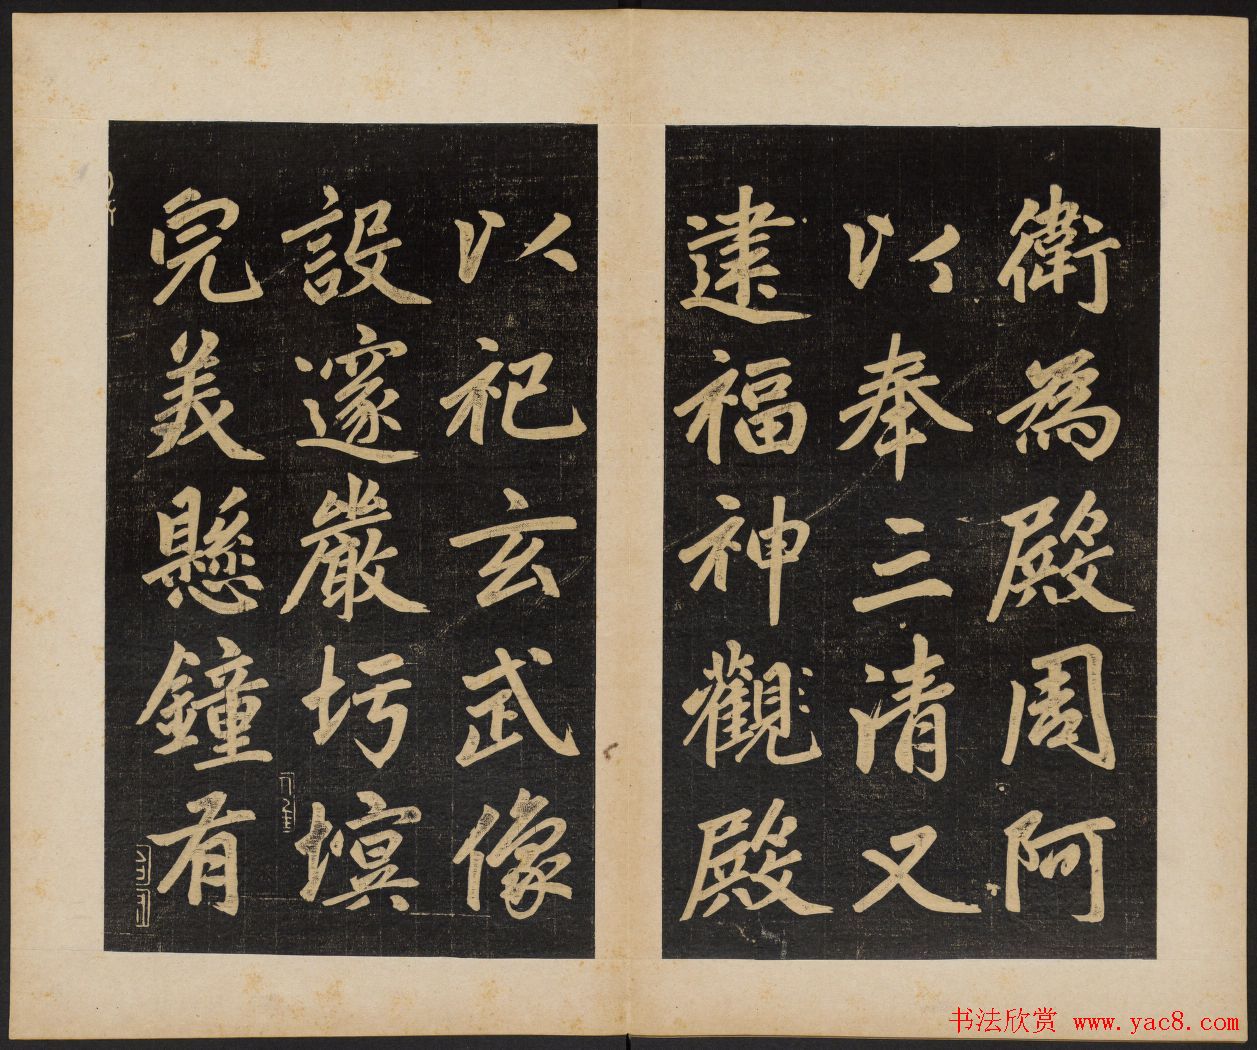 衛為殿周阿
以奉三清又
建福神觀殿
以祀玄武像
設邃嚴圬墁
完美懸鐘有
书法欣赏 www.yac8.com